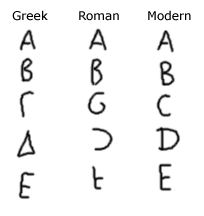 Greek Roman Modern
Α A A
Β B B
Γ G C
Δ Ɔ D
Ε t E